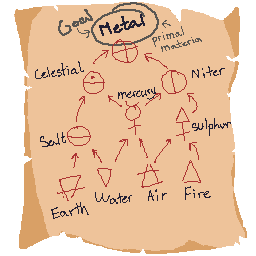 Good
Metal
primal
materia
Celestial
Niter
mercury
Salt
Sulphur
Earth
Water
Air
Fire